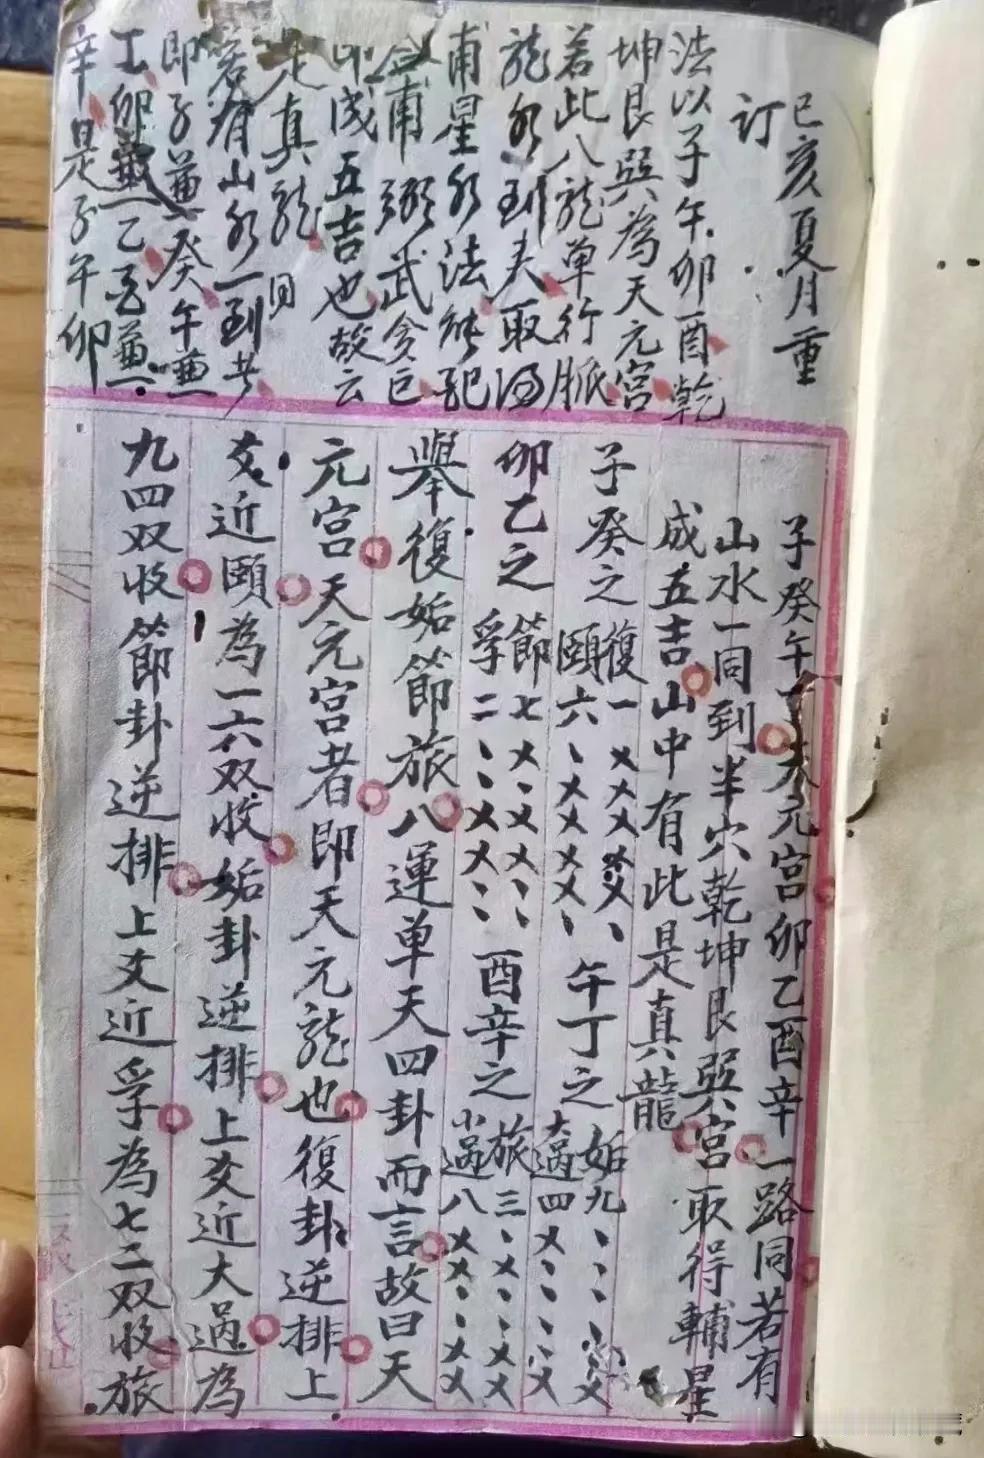 己亥夏月重
订
法以子午卯酉乾
坤艮巽為天元宮
若此八龍单行脈
龍水到夫取得
甫星水法能配
甫弼武貪巨
成五吉也故云
是真龍
若有山水一到者
即子兼癸午兼
丁卯兼乙酉兼
辛是子午卯
子癸午丁天元宮卯乙酉辛一路同若有
山水一同到半穴乾坤艮巽宮取得輔星
成五吉山中有此是真龍
子癸之 復一 頤六 午丁之 姤九 大過四
卯乙之 節七 孚二 酉辛之 旅三 小過八
舉復姤節旅八運单天四卦而言故曰天
元宮天元宮者即天元龍也復卦逆排上
爻近頤為一六双收姤卦逆排上爻近大過為
九四双收節卦逆排上爻近孚為七二双收旅